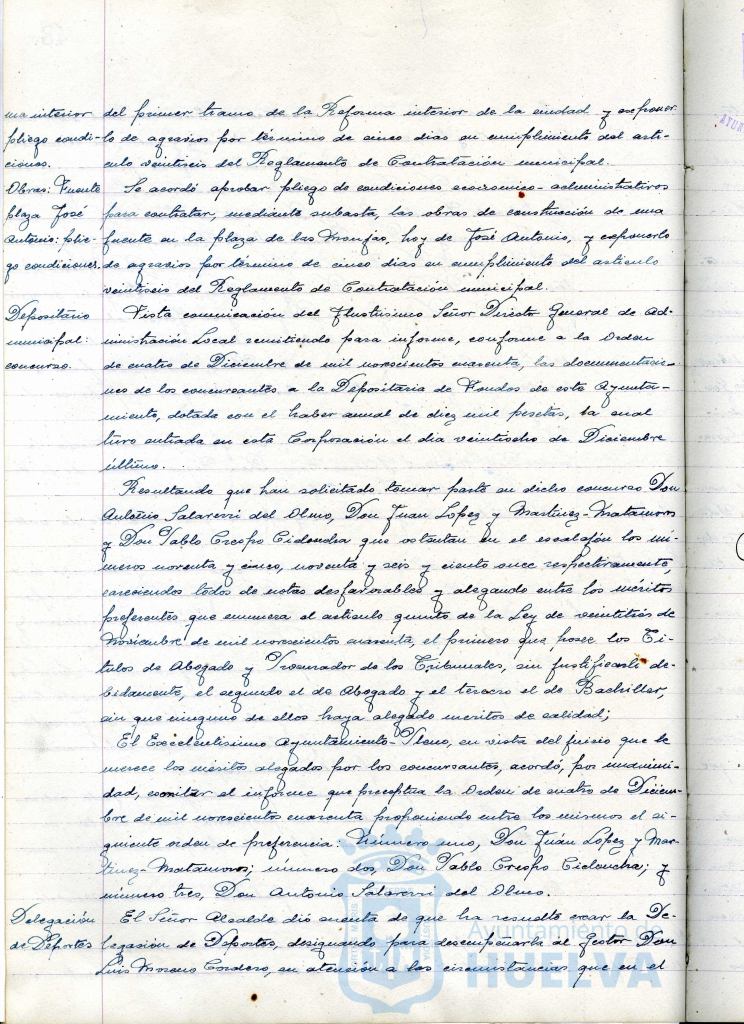 ma interior del primer tramo de la Reforma interior de la ciudad y exponer-
pliego condi- lo de agravios por término de cinco dias en cumplimiento del arti-
ciones. culo veintiseis del Reglamento de Contratación municipal.
Obras: Fuente Se acordó aprobar pliego de condiciones económico-administrativas
plaza José para contratar, mediante subasta, las obras de construcción de una
Antonio: plie- fuente en la plaza de las Monjas, hoy de José Antonio, y exponerlo
go condiciones. de agravios por término de cinco dias en cumplimiento del articulo
veintiseis del Reglamento de Contratación municipal.
Depositario Vista comunicación del Ilustrisimo Señor Director General de Ad-
municipal: ministración Local remitiendo para informe, conforme a la Orden
concurso. de cuatro de Diciembre de mil novecientos cuarenta, las documentacio-
nes de los concursantes a la Depositaria de Fondos de este Ayunta-
miento, dotada con el haber anual de diez mil pesetas, la cual
tuvo entrada en esta Corporación el dia veintiocho de Diciembre
último.
Resultando que han solicitado tomar parte en dicho concurso Don
Antonio Salaverri del Olmo, Don Juan Lopez y Martinez-Matamoros
y Don Pablo Crespo Cidoncha que ostentan en el escalafón los nú-
meros noventa y cinco, noventa y seis y ciento once respectivamente,
careciendo todos de notas desfavorables y alegando entre los méritos
preferentes que enumera el articulo quinto de la Ley de veintitrés de
Noviembre de mil novecientos cuarenta, el primero que posee los Ti-
tulos de Abogado y Procurador de los Tribunales, sin justificarlo de-
bidamente, el segundo el de Abogado y el tercero el de Bachiller,
sin que ninguno de ellos haya alegado meritos de calidad;
El Excelentisimo Ayuntamiento-Pleno, en vista del juicio que le
merece los méritos alegados por los concursantes, acordó, por unanimi-
dad, emitir el informe que preceptua la Orden de cuatro de Diciem-
bre de mil novecientos cuarenta proponiendo entre los mismos el si-
guiente orden de preferencia: Número uno, Don Juán Lopez y Mar-
tinez-Matamoros; número dos, Don Pablo Crespo Cidoncha; y
número tres, Don Antonio Salaverri del Olmo.
Delegación El Señor Alcalde dió cuenta de que ha resuelto crear la De-
de Deportes legación de Deportes, designando para desempeñarla al Gestor Don
Luis Moreno Cordero, en atención a las circunstancias que en el
Ayuntamiento de
HUELVA